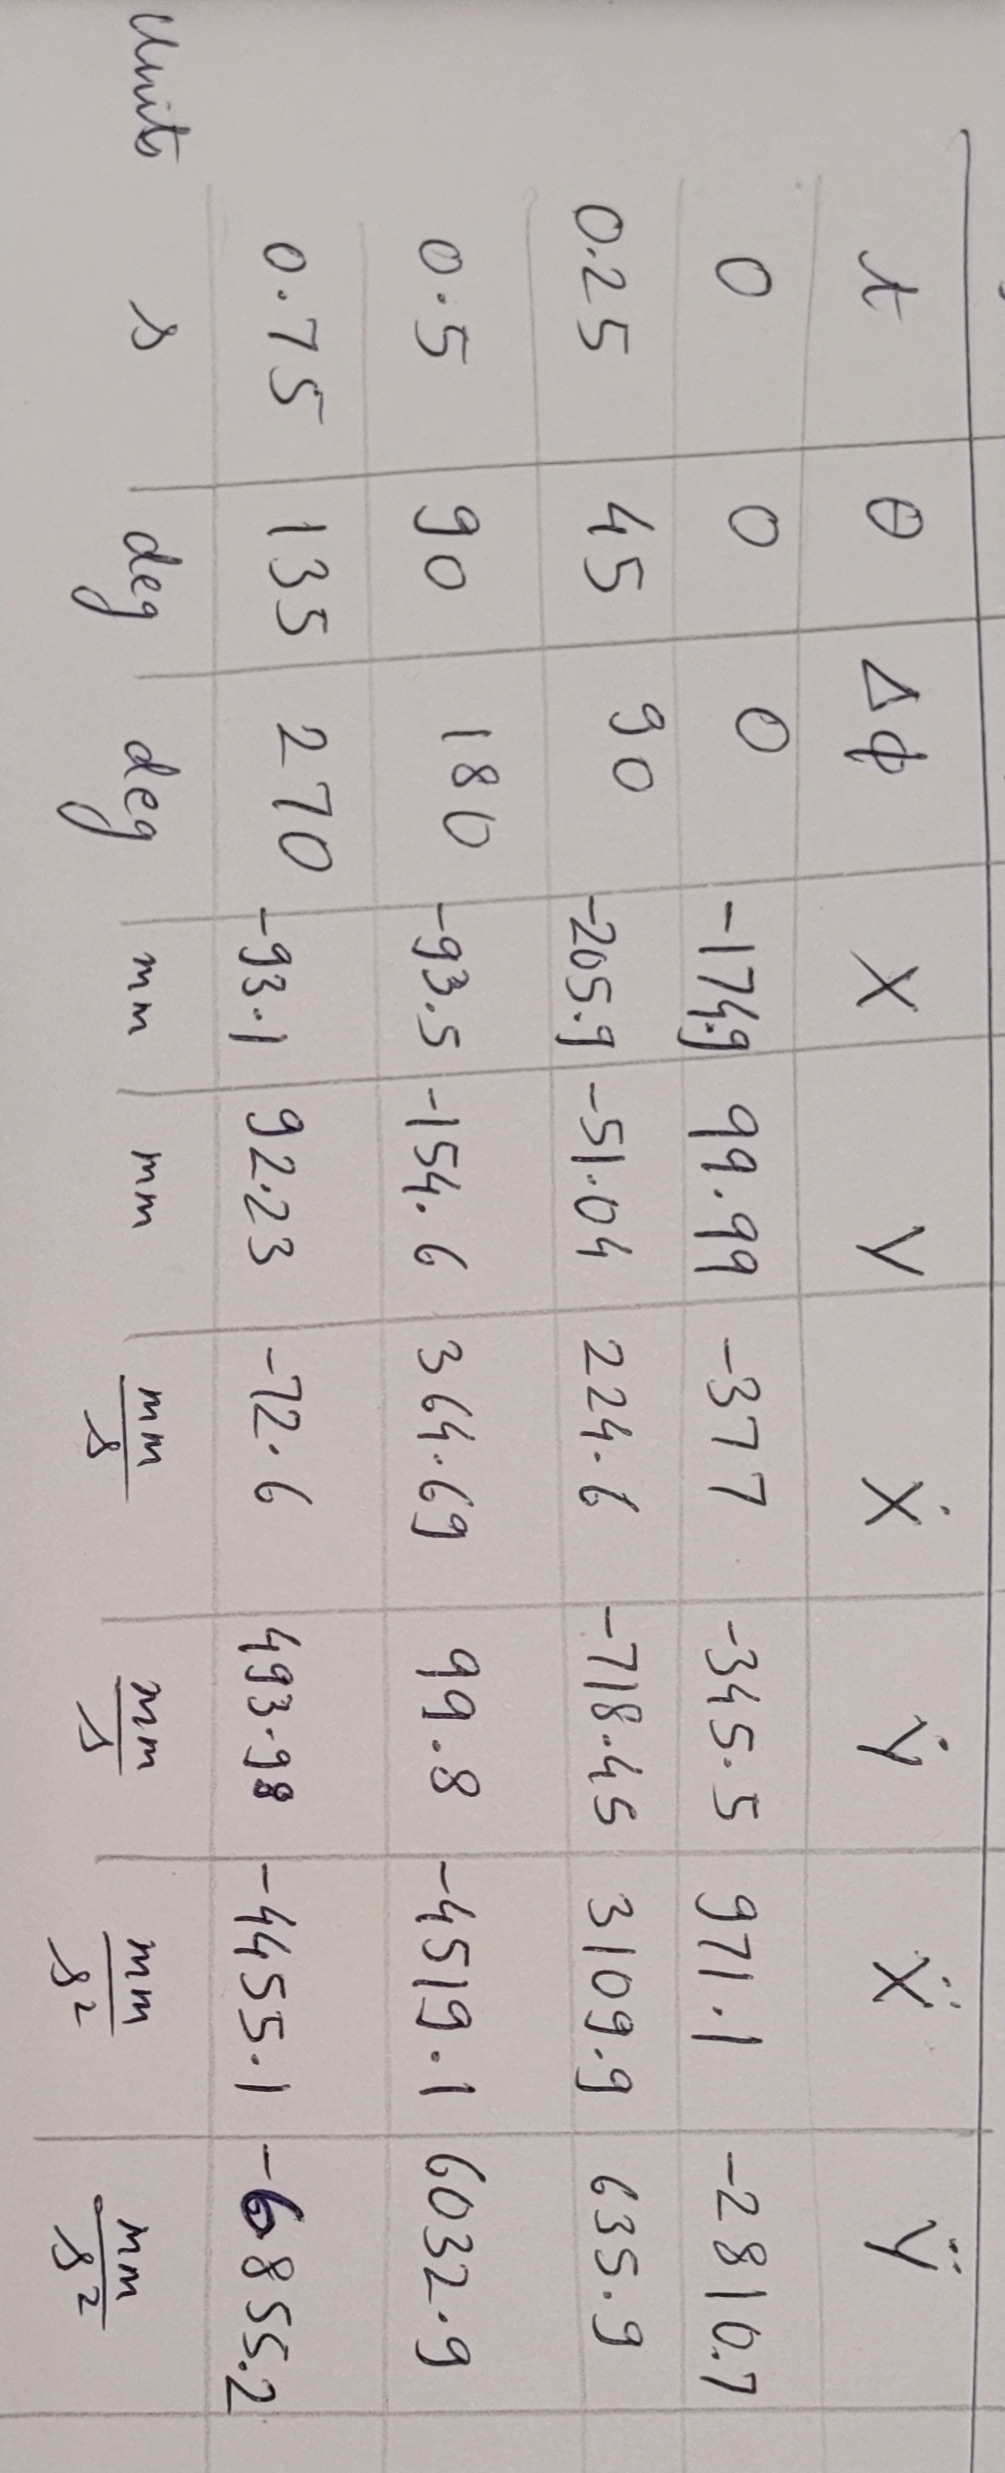 t θ Δϕ X Y Ẋ Ẏ Ẍ Ÿ
0 0 0 -174.9 99.99 -377 -345.5 971.1 -2810.7
0.25 45 90 -205.9 -51.04 224.6 -718.45 3109.9 635.9
0.5 90 180 -93.5 -154.6 364.69 99.8 -4519.1 6032.9
0.75 135 270 -93.1 92.23 -72.6 493.98 -4455.1 -6855.2
Units s deg deg mm mm mm/s mm/s mm/s² mm/s²